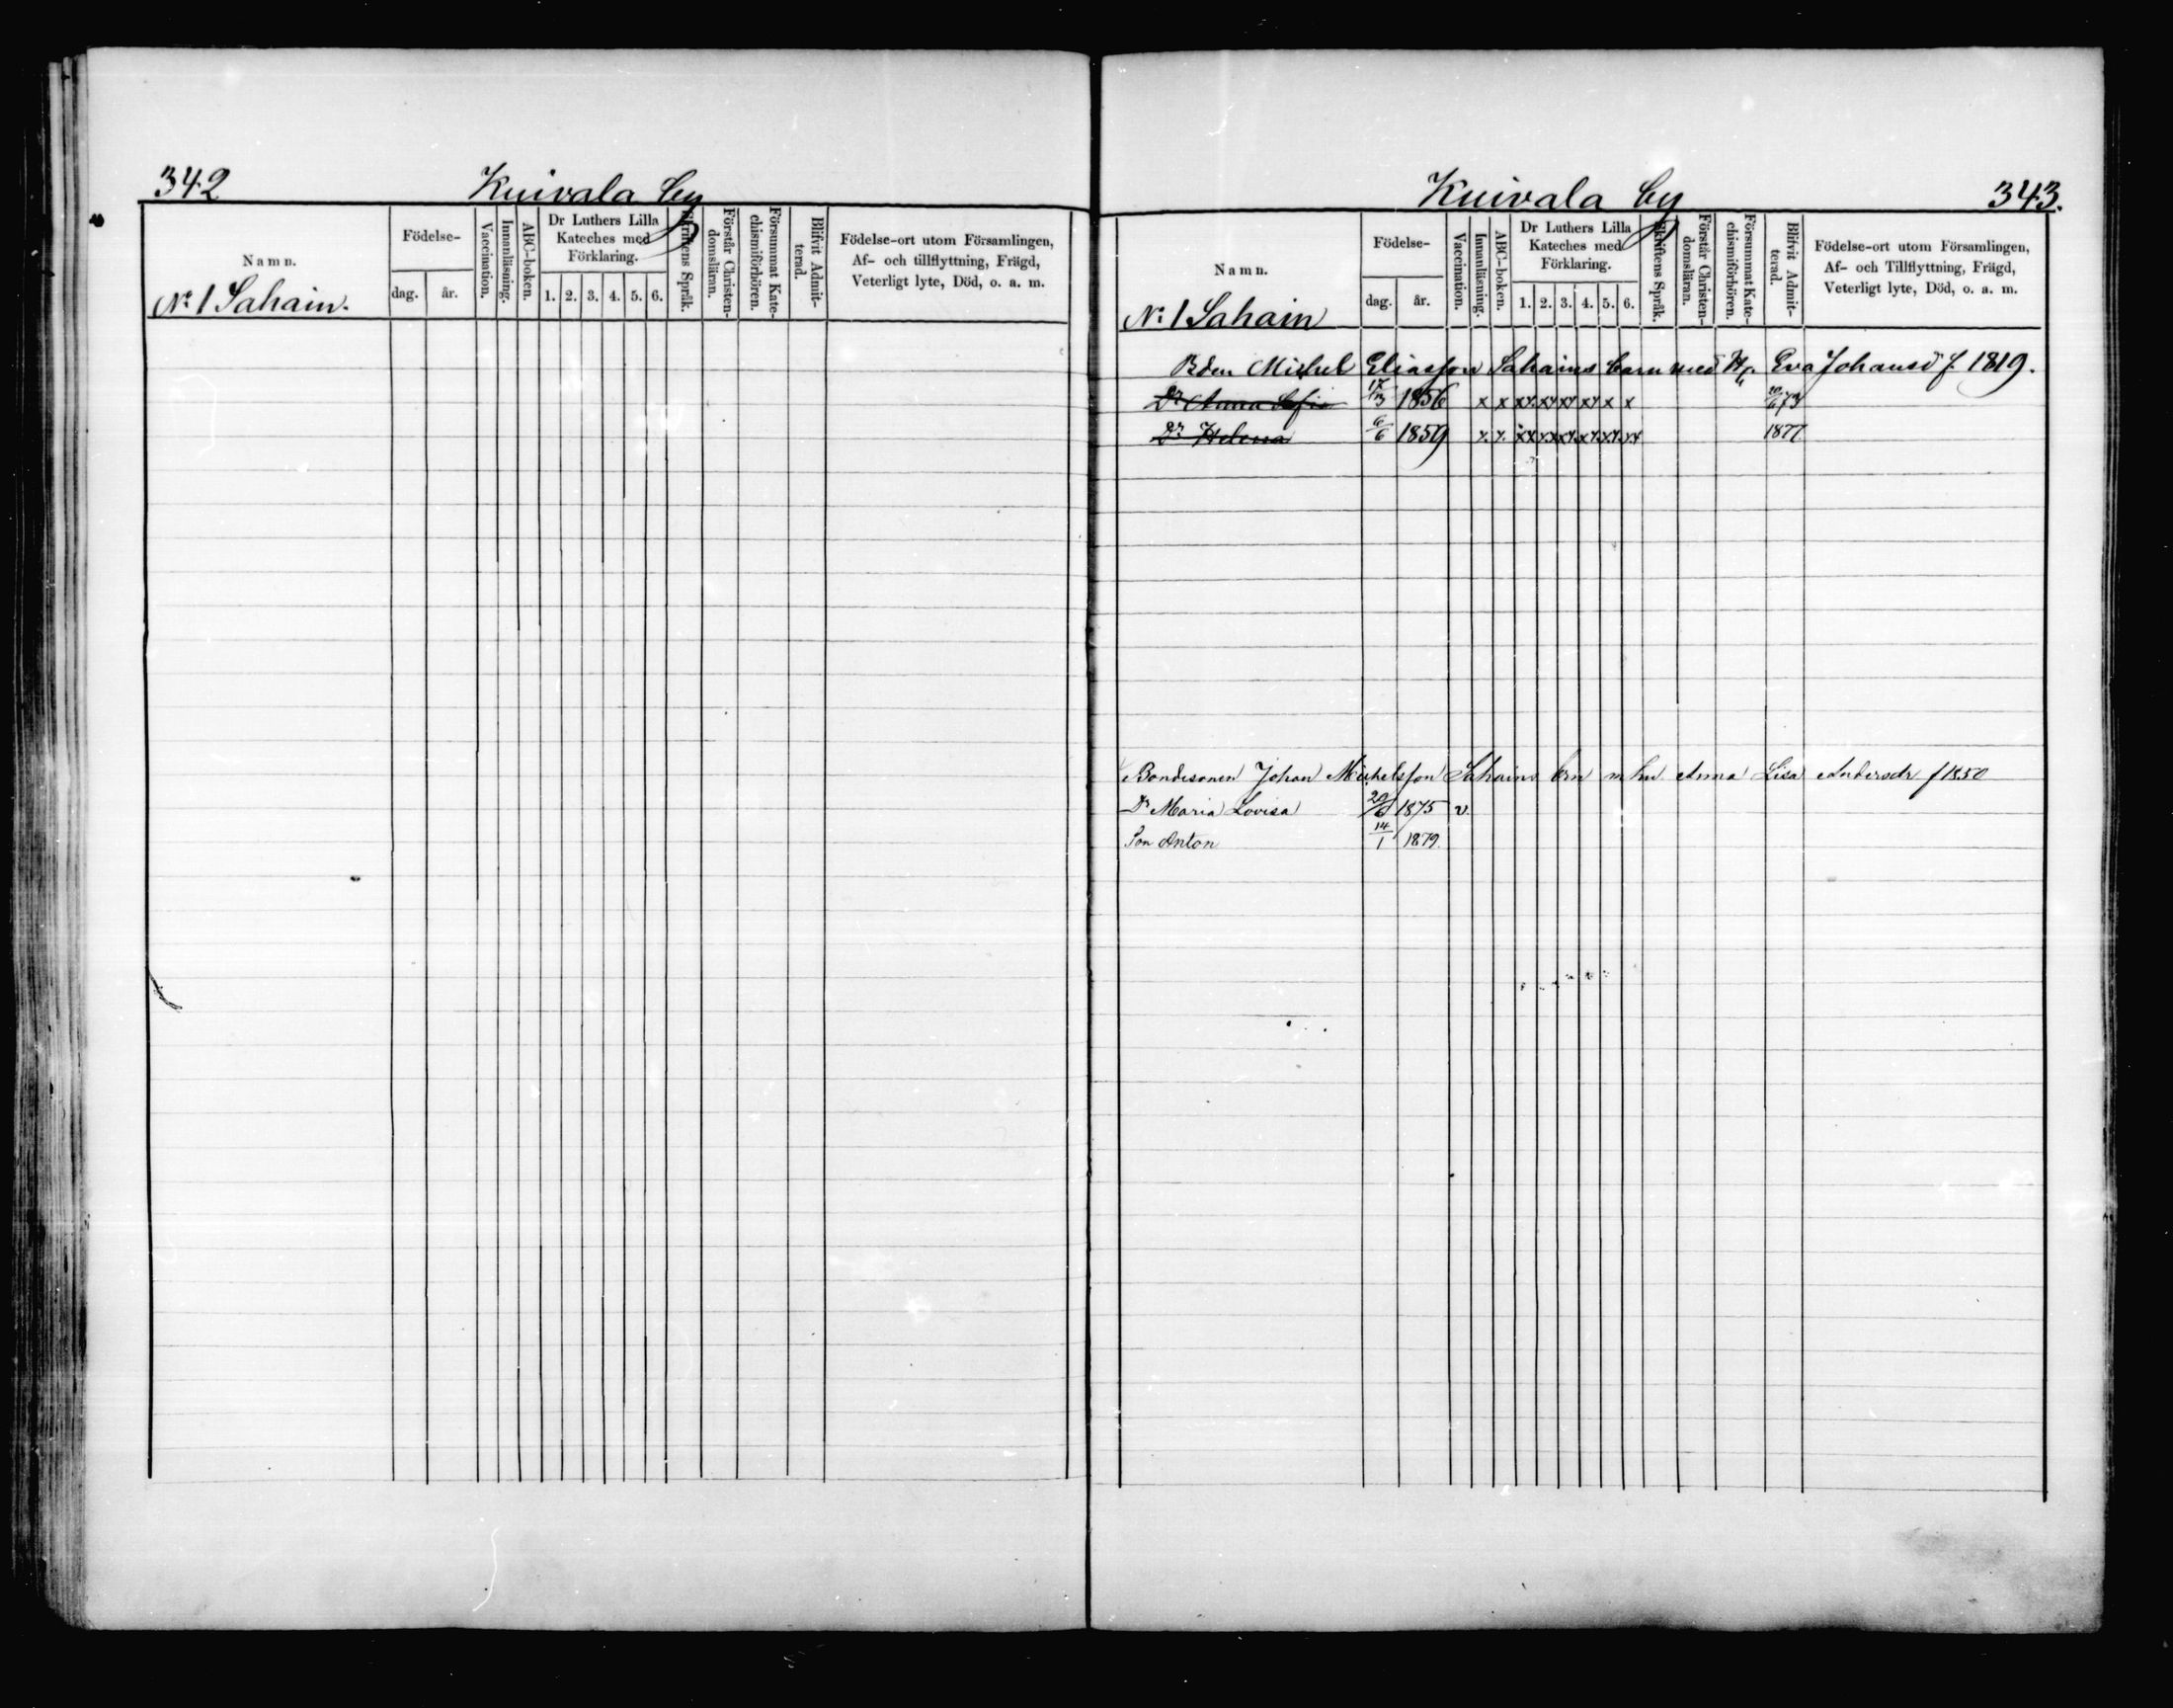 342 Kuivala by
Namn.
Födelse-
dag. år.
Vaccination.
Innanläsning.
ABC-boken.
Dr Luthers Lilla
Kateches med
Förklaring.
1. 2. 3. 4. 5. 6.
Skriftens Språk.
Förstår Christen-
domsläran.
Försummat Kate-
chismiförhören.
Blifvit Admit-
terad.
Födelse-ort utom Församlingen,
Af- och tillflyttning, Frägd,
Veterligt lyte, Död, o. a. m.
No 1 Sahain.
Kuivala by 343.
Namn.
Födelse-
dag. år.
Vaccination.
Innanläsning.
ABC-boken.
Dr Luthers Lilla
Kateches med
Förklaring.
1. 2. 3. 4. 5. 6.
Skriftens Språk.
Förstår Christen-
domsläran.
Försummat Kate-
chismiförhören.
Blifvit Admit-
terad.
Födelse-ort utom Församlingen,
Af- och Tillflyttning, Frägd,
Veterligt lyte, Död, o. a. m.
No 1 Sahain
Bden Michel Eliasson Sahains barn med Eva Johansd f. 1819.
Dr Anna Sofia 17/3 1856 x x xx xx xx xx x x 73
Dr Helena 6/6 1859 x. x. 1877
Bondesonen Johan Michelsson Sahains brn m hu Anna Lisa Andersdr f 1850
Dr Maria Lovisa 1875 v.
Son Anton 14/1 1879.